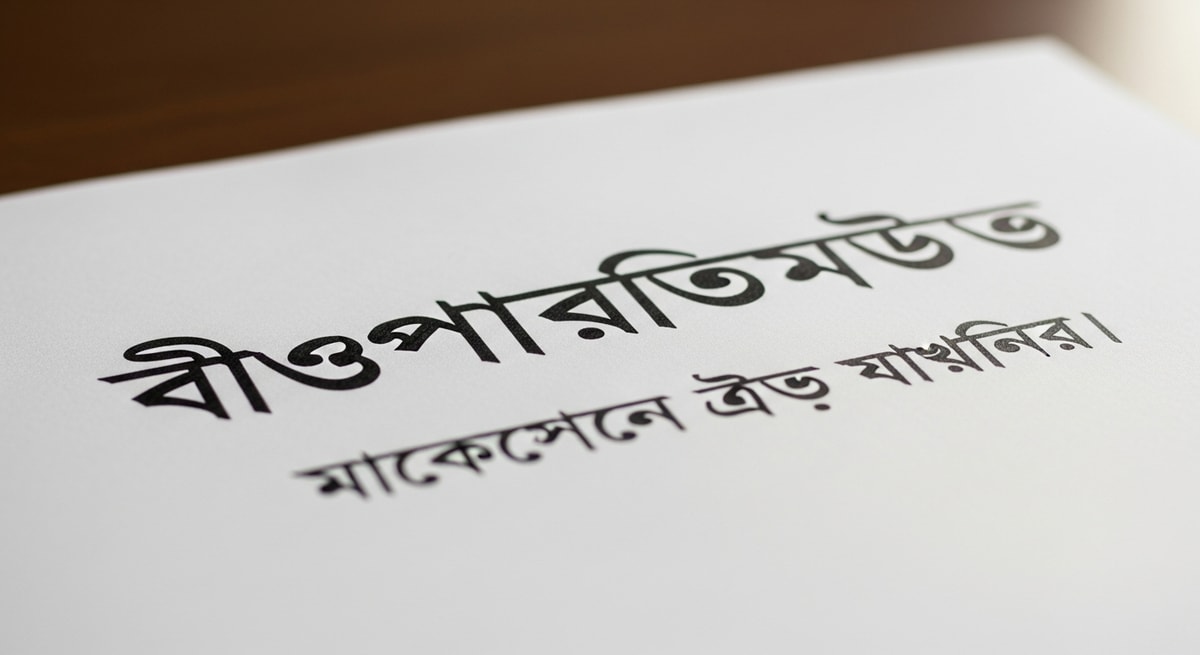 বীওপারতিমউভ
মাকেসেনে ত্রঁড় যাখনির।